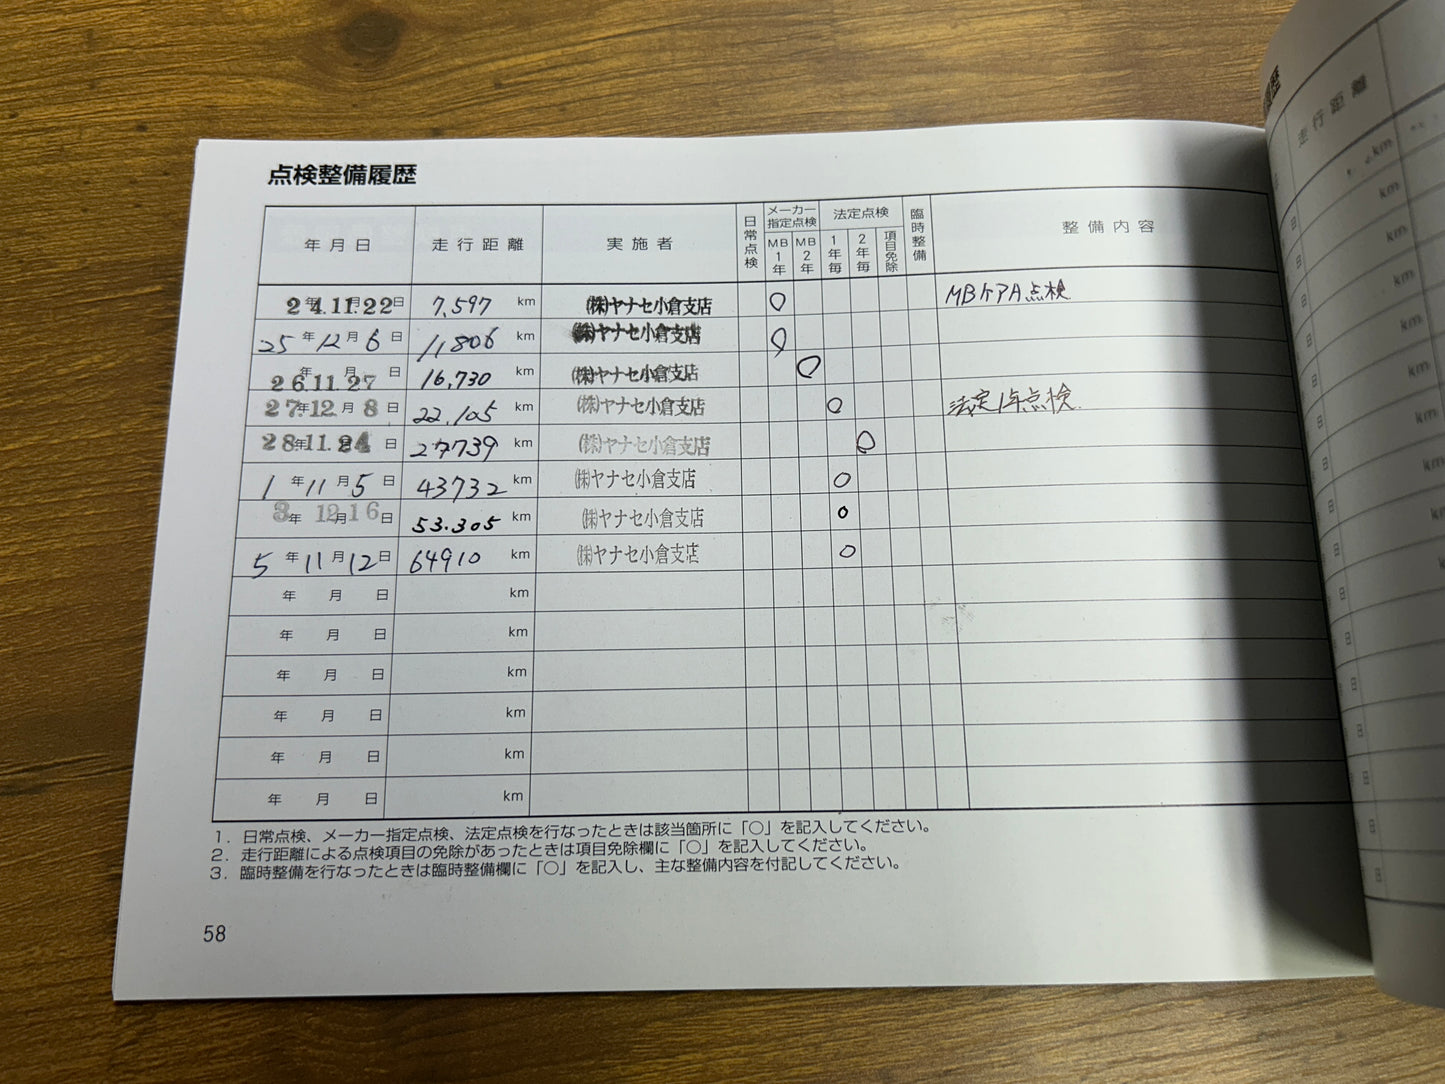 点検整備履歴
年月日 走行距離 実施者 日常点検 メーカー指定点検 MB1年 MB2年 法定点検 1年毎 2年毎 項目免除 臨時整備 整備内容
24年11月22日 7,597 km ㈱ヤナセ小倉支店 ○ MBケアA点検
25年12月6日 11806 km ㈱ヤナセ小倉支店 ○
26年11月27日 16,730 km ㈱ヤナセ小倉支店 ○
27年12月8日 22,105 km ㈱ヤナセ小倉支店 ○ 法定1年点検
28年11月24日 27739 km ㈱ヤナセ小倉支店 ○
1年11月5日 43732 km ㈱ヤナセ小倉支店 ○
3年12月16日 53.305 km ㈱ヤナセ小倉支店 ○
5年11月12日 64910 km ㈱ヤナセ小倉支店 ○
年 月 日 km
年 月 日 km
年 月 日 km
年 月 日 km
年 月 日 km
年 月 日 km
1. 日常点検、メーカー指定点検、法定点検を行なったときは該当箇所に「○」を記入してください。
2. 走行距離による点検項目の免除があったときは項目免除欄に「○」を記入してください。
3. 臨時整備を行なったときは臨時整備欄に「○」を記入し、主な整備内容を付記してください。
58
走行距離
km
km
km
km
km
km
km
km